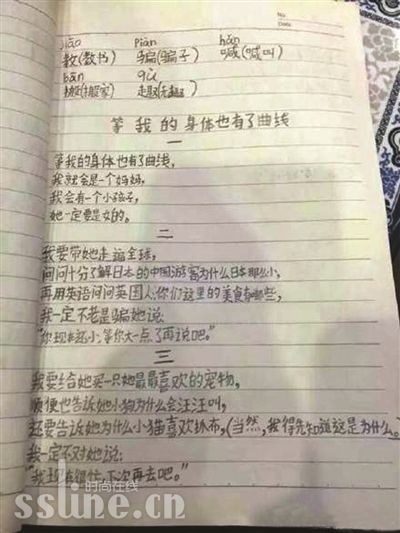 No
Date
jiāo piàn hǎn
教(教书) 骗(骗子) 喊(喊叫)
bān qù
搬(搬家) 趣(无趣)
等我的身体也有了曲线
一
等我的身体也有了曲线,
我就会是一个妈妈,
我会有一个小孩子,
她一定要是女的。
二
我要带她走遍全球,
问问十分了解日本的中国游客为什么日本那么小,
再用英语问问英国人:你们这里的美食有哪些,
我一定不老是骗她说:
“你现在还小,等你大一点了再说吧。”
三
我要给她买一只她最最喜欢的宠物,
顺便也告诉她小狗为什么会汪汪叫,
还要告诉她为什么小猫喜欢抓布,(当然,我得先知道这是为什么。)
我一定不对她说:
“我现在很忙,下次再去吧。”
时尚在线
ssline.cn